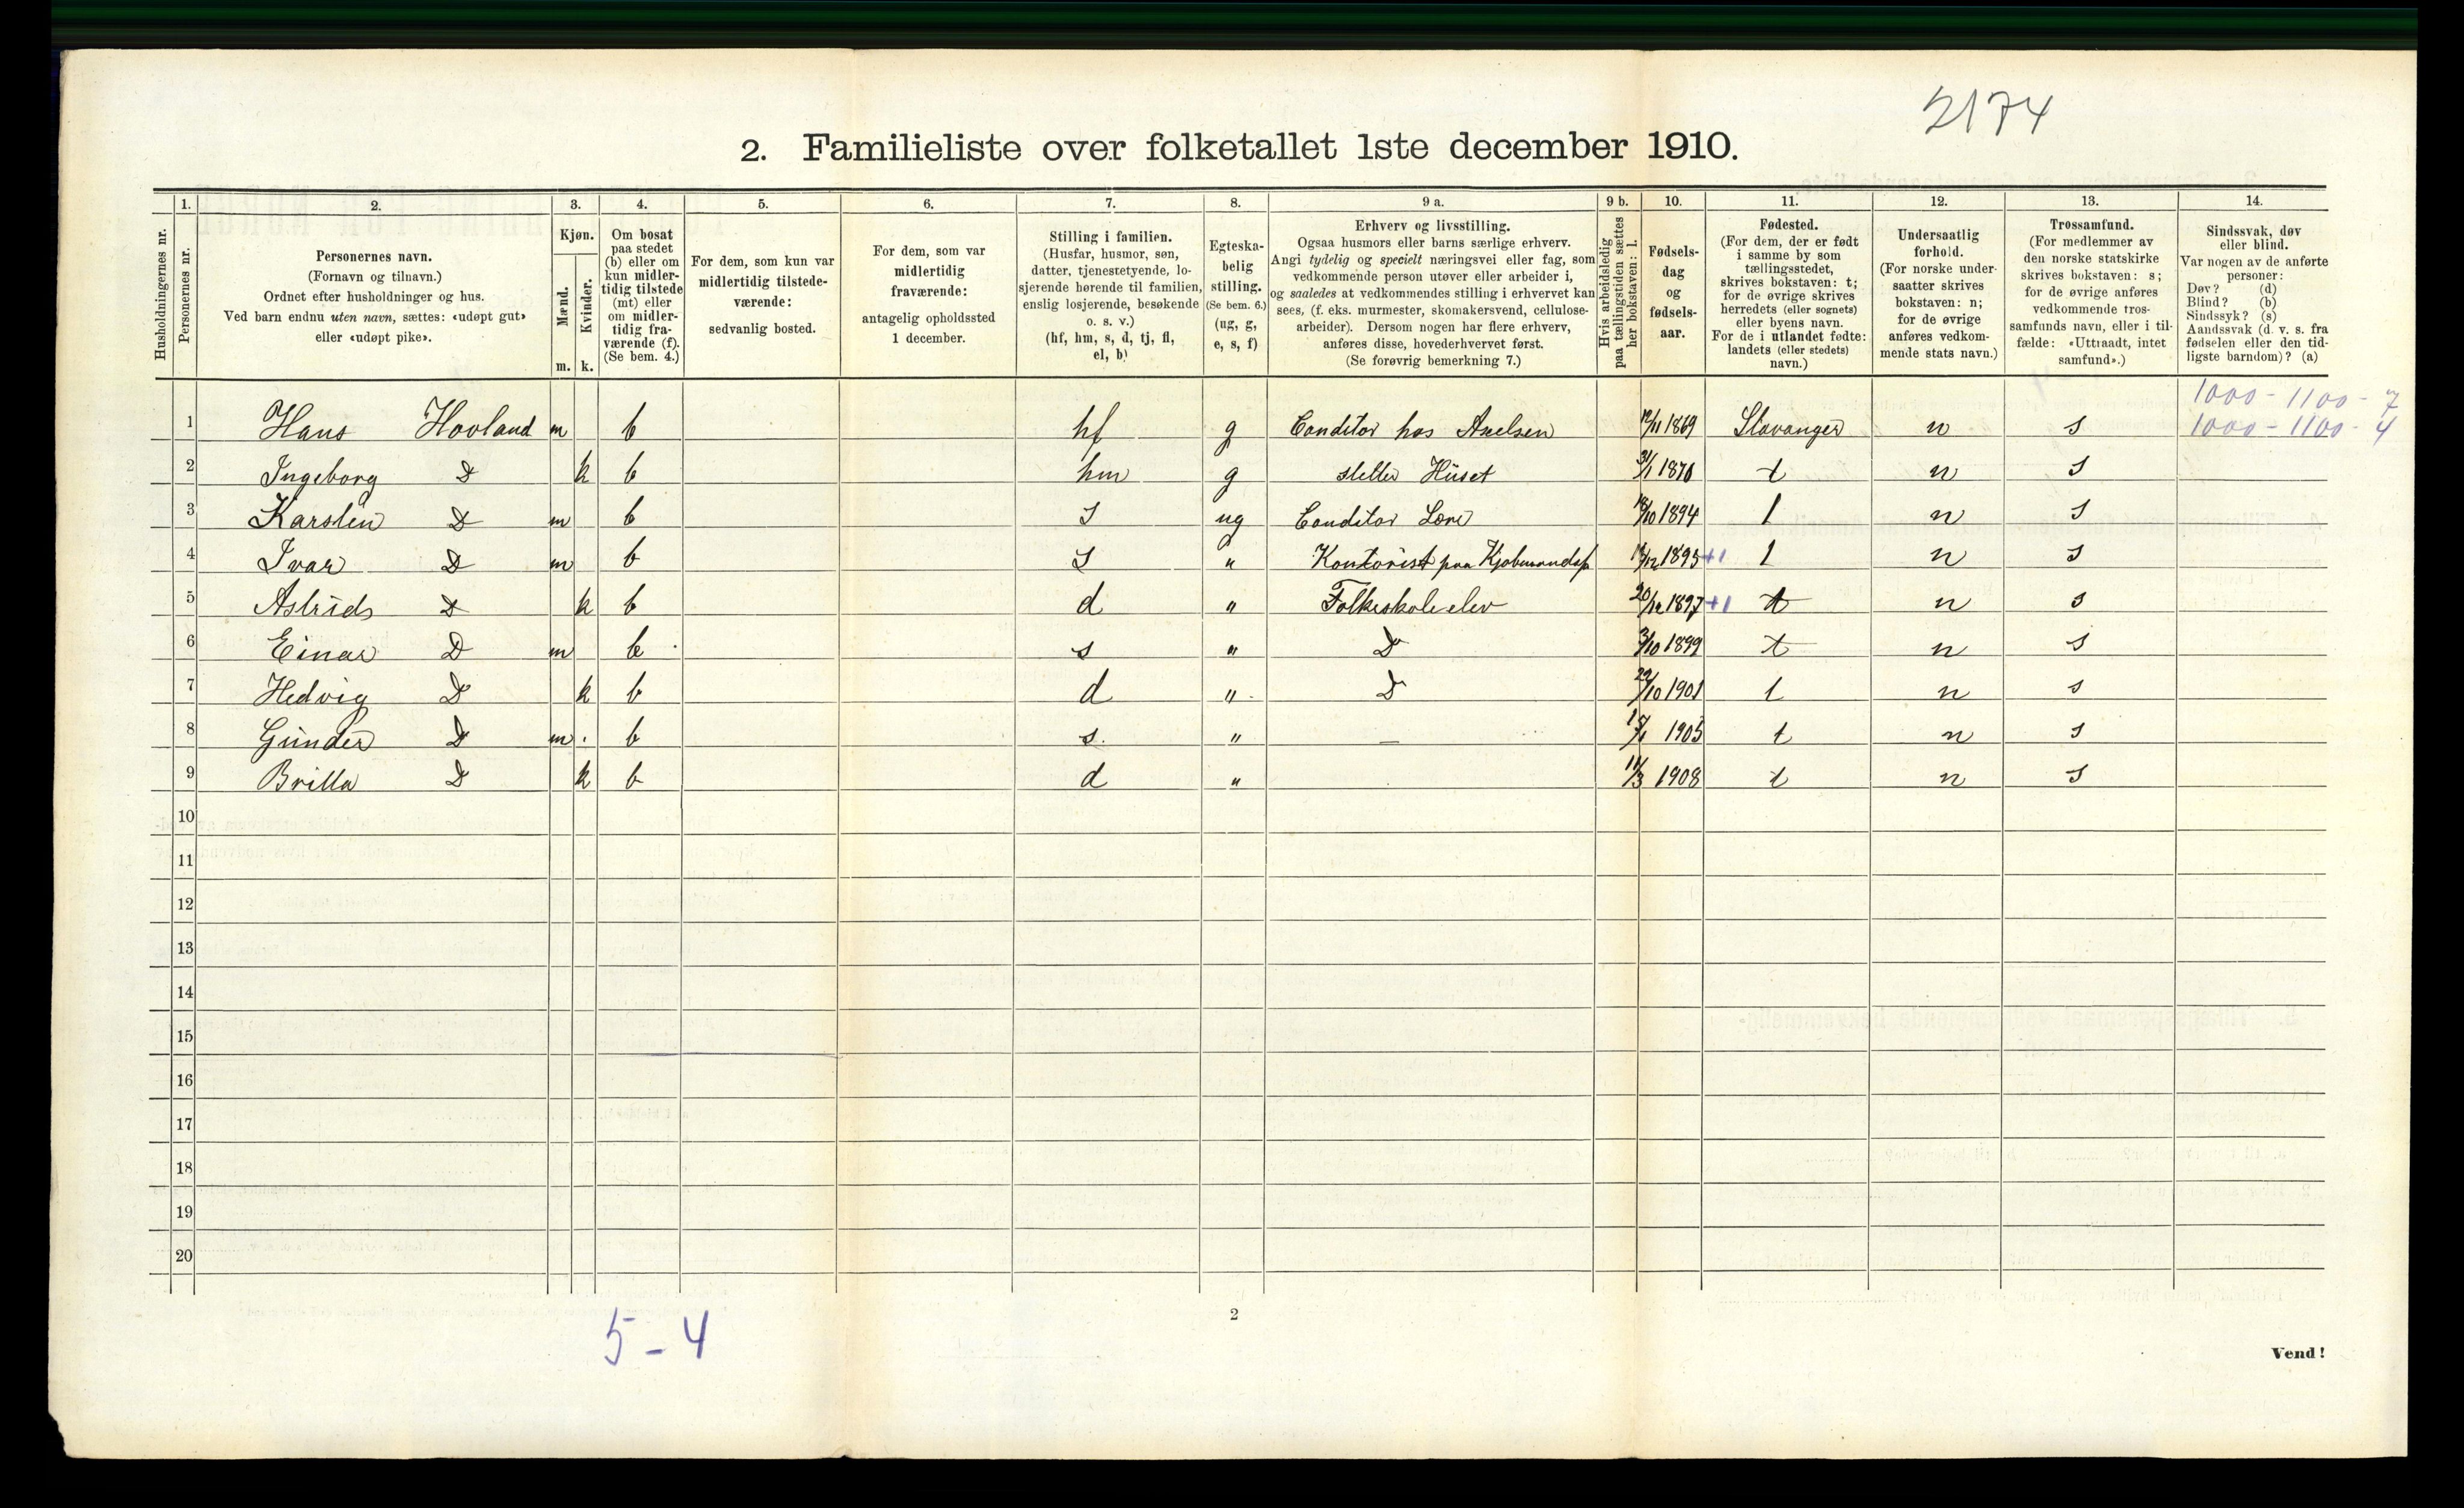 2174
2. Familieliste over folketallet 1ste december 1910.
1. 2. 3. 4. 5. 6. 7. 8. 9 a. 9 b. 10. 11. 12. 13. 14.
Husholdningernes nr.
Personernes nr.
Personernes navn.
(Fornavn og tilnavn.)
Ordnet efter husholdninger og hus.
Ved barn endnu uten navn, sættes: «udøpt gut»
eller «udøpt pike».
Kjøn.
Mænd.
Kvinder.
m. k.
Om bosat
paa stedet
(b) eller om
kun midler-
tidig tilstede
(mt) eller
om midler-
tidig fra-
værende (f).
(Se bem. 4.)
For dem, som kun var
midlertidig tilstede-
værende:
sedvanlig bosted.
For dem, som var
midlertidig
fraværende:
antagelig opholdssted
1 december.
Stilling i familien.
(Husfar, husmor, søn,
datter, tjenestetyende, lo-
sjerende hørende til familien,
enslig losjerende, besøkende
o. s. v.)
(hf, hm, s, d, tj, fl,
el, b)
Egteska-
belig
stilling.
(Se bem. 6.)
(ug, g,
e, s, f)
Erhverv og livsstilling.
Ogsaa husmors eller barns særlige erhverv.
Angi tydelig og specielt næringsvei eller fag, som
vedkommende person utøver eller arbeider i,
og saaledes at vedkommendes stilling i erhvervet kan
sees, (f. eks. murmester, skomakersvend, cellulose-
arbeider). Dersom nogen har flere erhverv,
anføres disse, hovederhvervet først.
(Se forøvrig bemerkning 7.)
Hvis arbeidsledig
paa tællingstiden sættes
her bokstaven: l.
Fødsels-
dag
og
fødsels-
aar.
Fødested.
(For dem, der er født
i samme by som
tællingsstedet,
skrives bokstaven: t;
for de øvrige skrives
herredets (eller sognets)
eller byens navn.
For de i utlandet fødte:
landets (eller stedets)
navn.)
Undersaatlig
forhold.
(For norske under-
saatter skrives
bokstaven: n;
for de øvrige
anføres vedkom-
mende stats navn.)
Trossamfund.
(For medlemmer av
den norske statskirke
skrives bokstaven: s;
for de øvrige anføres
vedkommende tros-
samfunds navn, eller i til-
fælde: «Uttraadt, intet
samfund».)
Sindssvak, døv
eller blind.
Var nogen av de anførte
personer:
Døv? (d)
Blind? (b)
Sindssyk? (s)
Aandssvak (d. v. s. fra
fødselen eller den tid-
ligste barndom)? (a)
1000 - 1100 - 7
1 Hans Hovland m b hf g Conditor hos Axelsen 1869 Stavanger n s 1000 - 1100 - 4
2 Ingeborg D k b hm g steller Huset 31/1 1870 t n s
3 Karsten D m b s ug Conditor Lære 18/10 1894 t n s
4 Ivar D m b s " Kontorist paa 1895 +1 t n s
5 Astrid D k b d " Folkeskole elev 20/12 1897 +1 t n s
6 Einar D m b s " D 3/10 1899 t n s
7 Hedvig D k b d " D 29/10 1901 t n s
8 Gunder D m b s " — 1905 t n s
9 Britta D k b d " 11/3 1908 t n s
10
11
12
13
14
15
16
17
18
19
20
5 - 4
2
Vend!